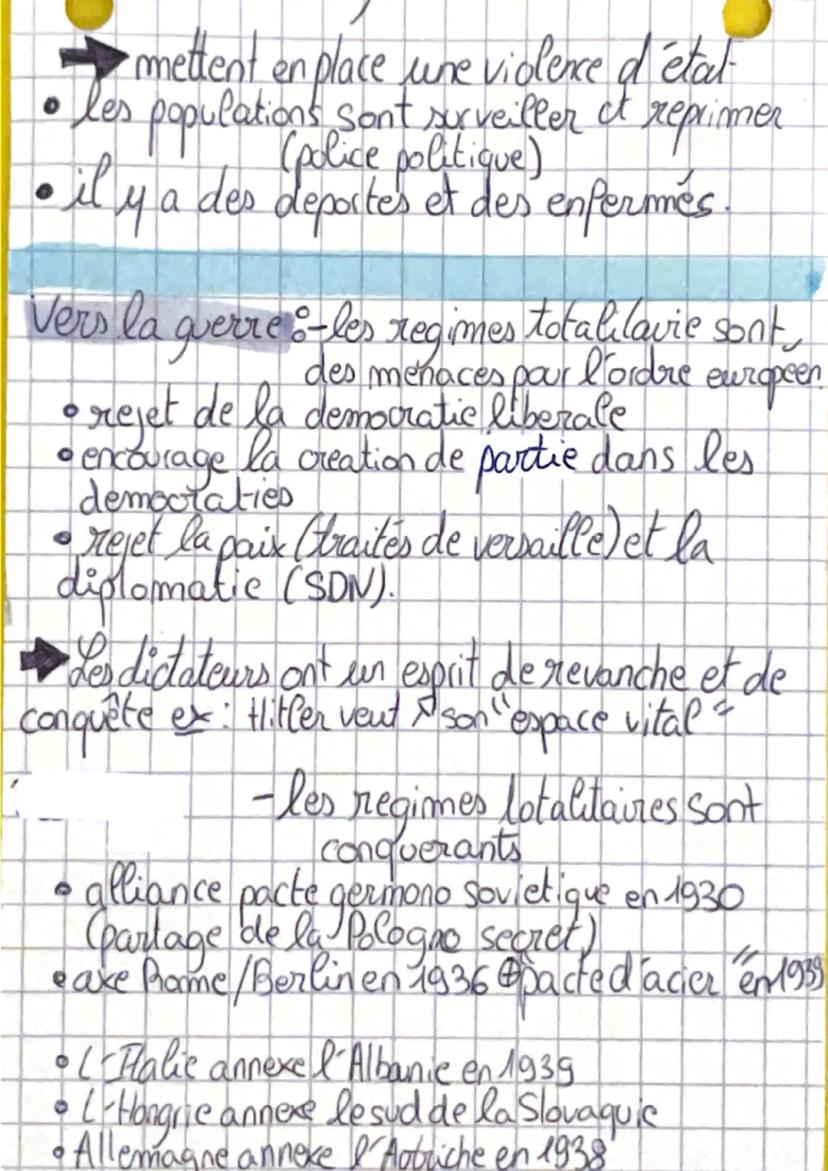 ➡ mettent en place une violence d'état
• les populations sont surveiller et reprimer
(police politique)
• il y a des deportes et des enfermés.
Vers la guerre : - les regimes totalilavie sont
des menaces pour l'ordre européen
• rejet de la democratie liberale
• encourage la creation de partie dans les
democraties
• rejet la paix (traités de versaille) et la
diplomatie (SDN).
➡ Les dictateurs ont un esprit de revanche et de
conquête ex : Hitler veut ↗ son "espace vital"
- les regimes totalitaires sont
conquerants
• alliance pacte germono sovietique en 1930
(partage de la Pologne secret)
• axe Rome/Berlin en 1936 ⊕ pacte d'acier" en 1939
• L'Italie annexe l'Albanie en 1939
• L'Hongrie annexe le sud de la Slovaquie
• Allemagne annexe l'Autriche en 1938